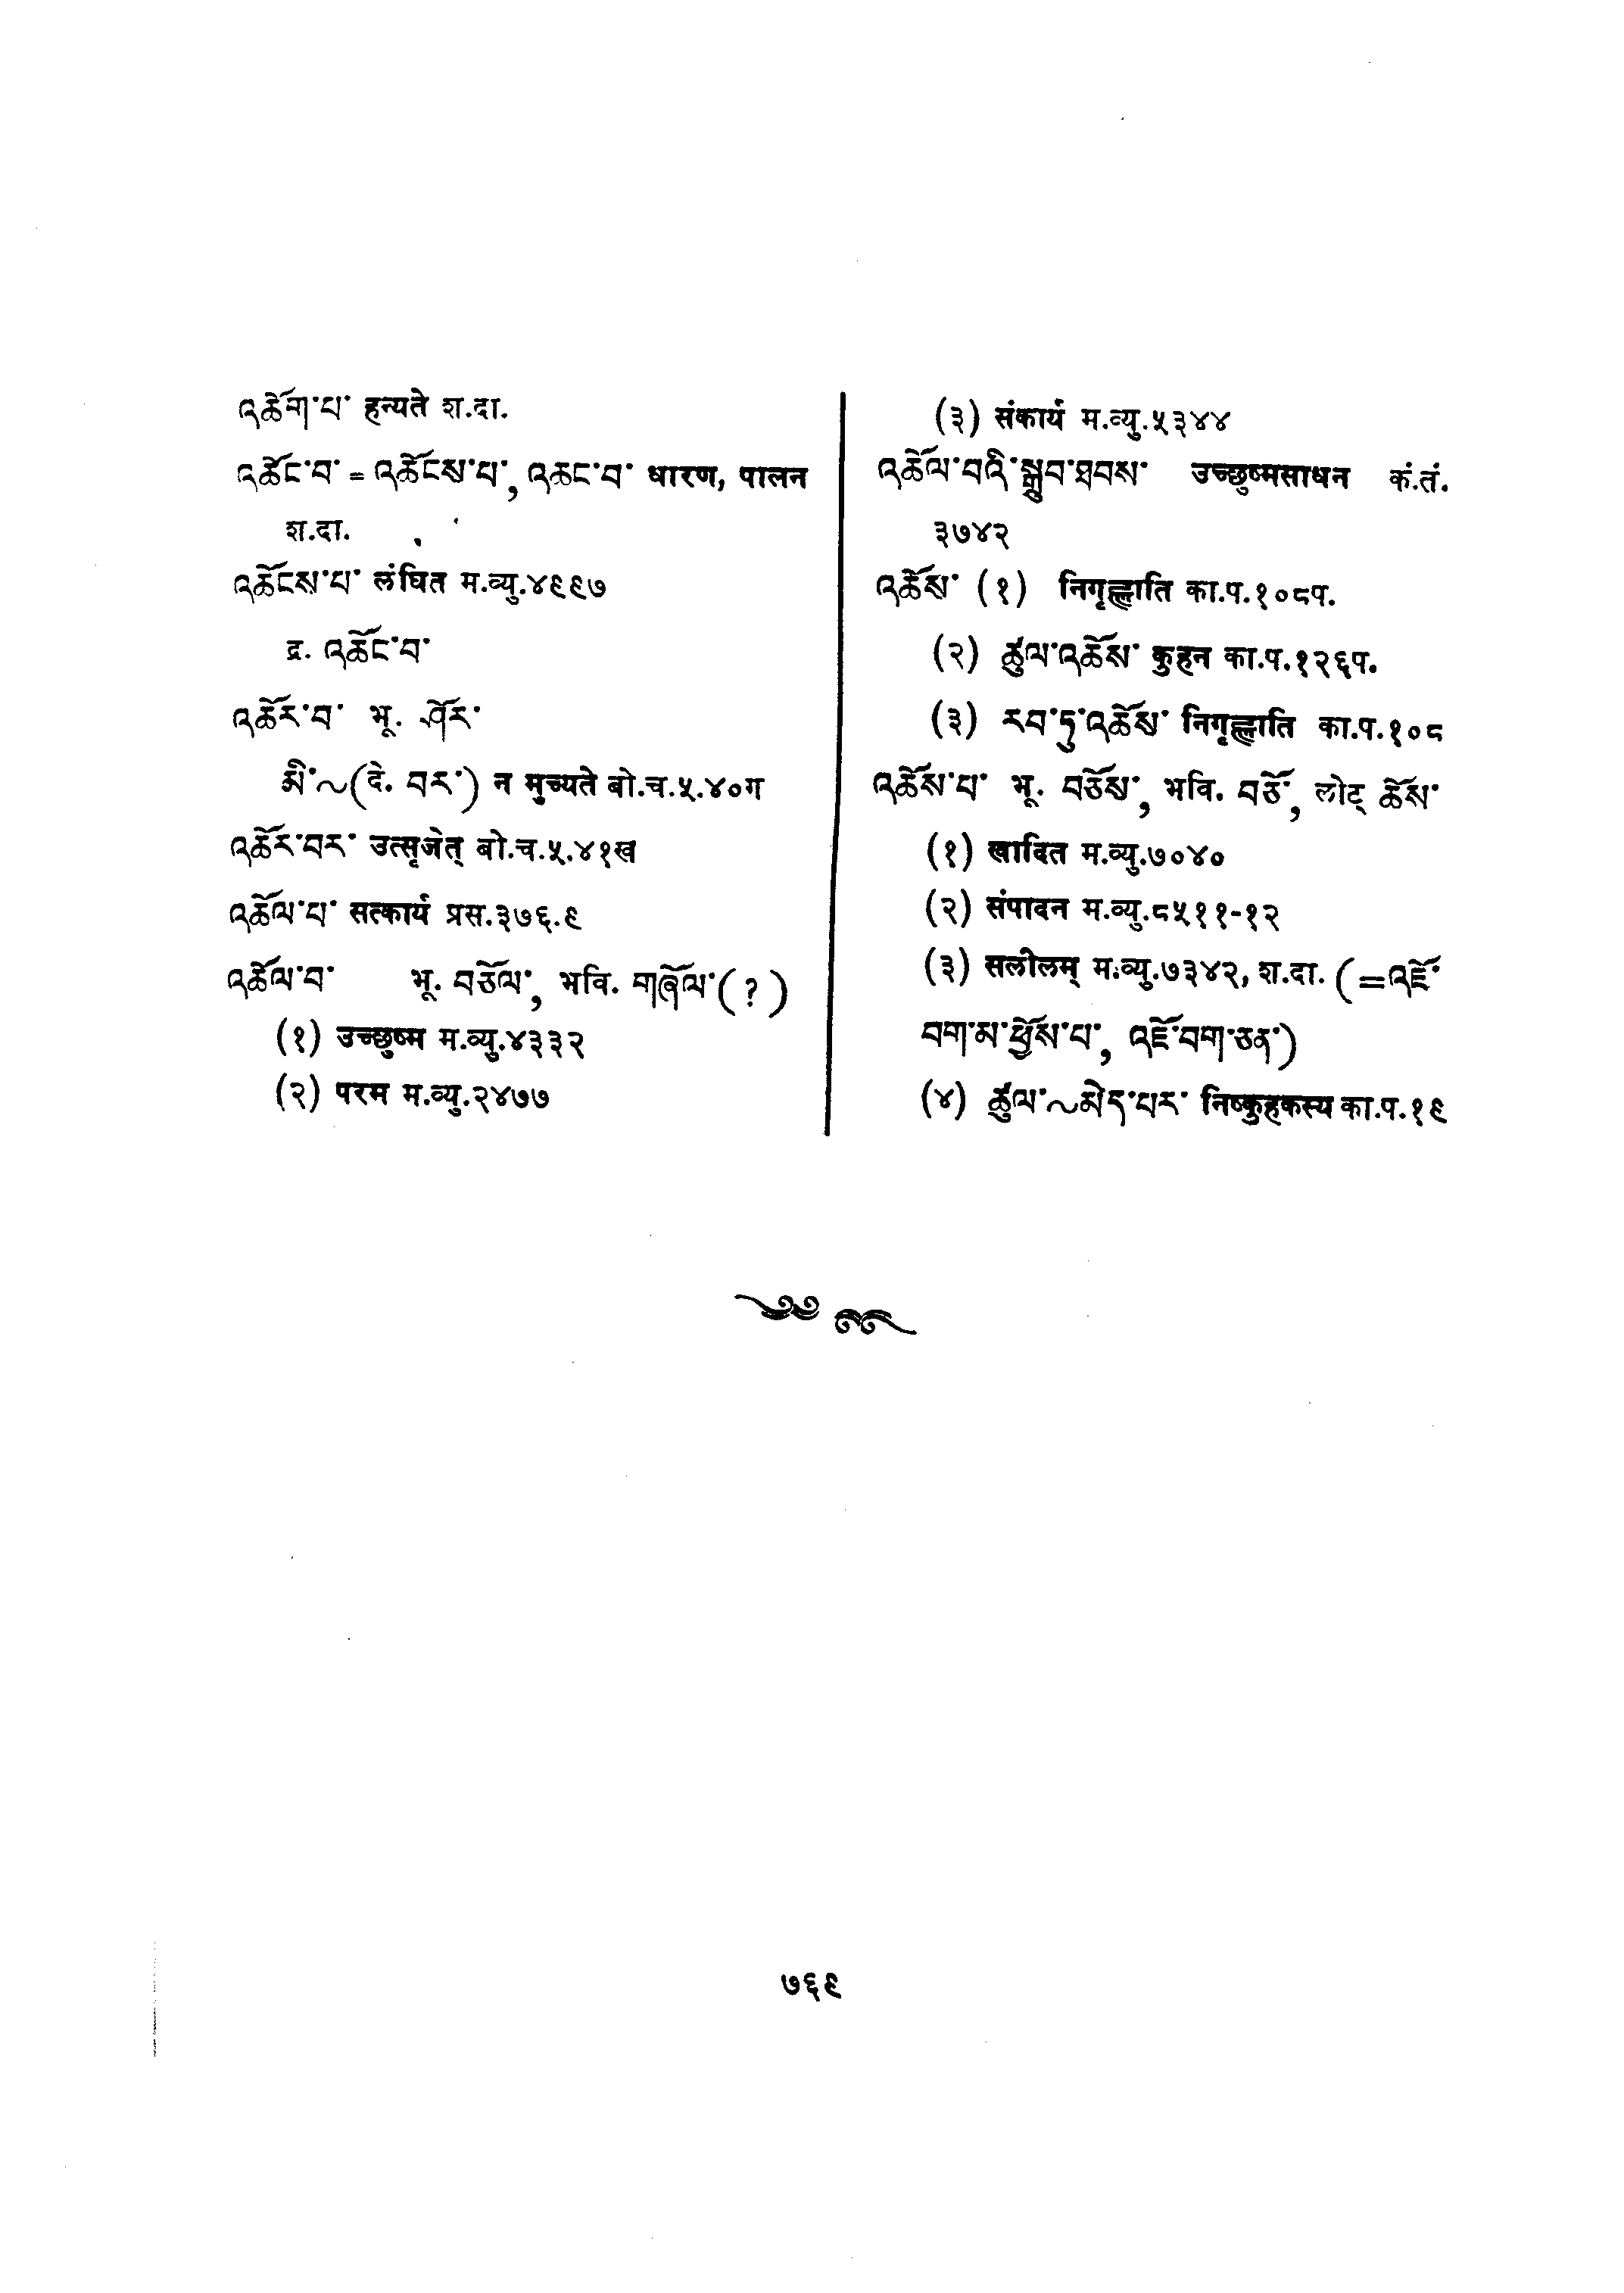 འཆོག་པ་ हन्यते श.दा.
འཆོང་བ་ = འཆོངས་པ་, འཆང་བ་ धारण, पालन
श.दा.
འཆོངས་པ་ लंघित म.व्यु.४९९७
द्र. འཆོང་བ་
འཆོར་བ་ भू. ཤོར་
མི་~(दे. བར་) न मुच्यते बो.च.५.४०ग
འཆོར་བར་ उत्सृजेत् बो.च.५.४१ख
འཆོལ་པ་ सत्कार्य प्रस.३७६.९
འཆོལ་བ་ भू. བཅོལ་, भवि. གཞོལ་(?)
(१) उच्छुष्म म.व्यु.४३३२
(२) परम म.व्यु.२४७७
(३) संकार्य म.व्यु.५३४४
འཆོལ་བའི་སྒྲུབ་ཐབས་ उच्छुष्मसाधन कं.तं.
३७४२
འཆོས་ (१) निगृह्णाति का.प.१०८प.
(२) ཚུལ་འཆོས་ कुहन का.प.१२६प.
(३) རབ་ཏུ་འཆོས་ निगृह्णाति का.प.१०८
འཆོས་པ་ भू. བཅོས་, भवि. བཅོ་, लोट् ཆོས་
(१) खादित म.व्यु.७०४०
(२) संपादन म.व्यु.८५११-१२
(३) सलीलम् म.व्यु.७३४२, श.दा. (=འཇོ་
བག་མ་ཕྱོས་པ་, འཇོ་བག་ཅན་)
(४) ཚུལ་~མེད་པར་ निष्कुहकस्य का.प.१९
७६९